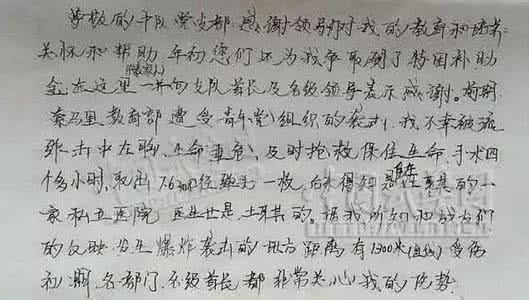 尊敬的支队党支部，感谢领导对我的教育和培养
关怀和帮助，年初您们还为我争取到了特困补助
金，在这里一并向支队首长及各级领导表示感谢。前期
索马里教育部遭受青年党组织的袭击，我不幸被流
弹击中左胸，生命垂危，及时抢救，保住生命，手术四
个多小时，取出7.62 弹头一枚，后来得知是在土耳其的一
家私立医院，医生也是土耳其的。据我所知和战友们
的反映，发生爆炸袭击的地方距离有1300米(直线)受伤
初期，各部门、各级首长都非常关心我的伤势